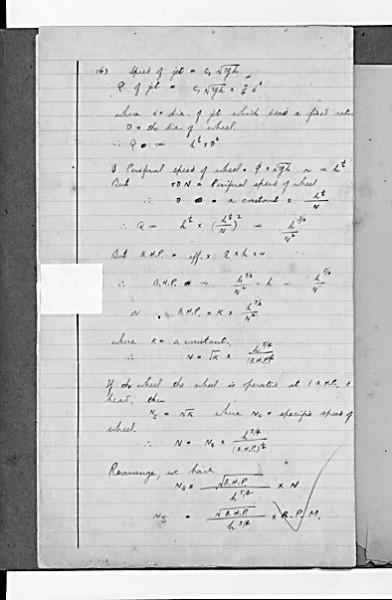 (6) Speed of jet = C₁ √2gh
Q of jet = C₁ √2gh × π/4 d²
where d = dia. of jet which bears a fixed ratio
D = the dia. of wheel.
∴ Q ∝ h^½ × D²
Peripheral speed of wheel = φ × √2gh ∝ h^½
But πDN = Peripheral speed of wheel
∴ D = a constant × h^½/N
∴ Q ∝ h^½ × (h^½/N)² ∝ h^3/2/N²
But B.H.P. = eff. × Q × h × w
∴ B.H.P. ∝ h^3/2/N² × h ∝ h^5/2/N²
B.H.P. = K × h^5/2/N²
where K = a constant,
∴ N = √K × h^5/4/(B.H.P.)^½
If the wheel is operated at 1 B.H.P. +
head, then
Ns = √K where Ns = specific speed of
wheel.
∴ N = Ns × h^5/4/(B.H.P.)^½
Rearrange, we have
Ns = √B.H.P./h^5/4 × N
Ns = √B.H.P./h^5/4 × R.P.M.